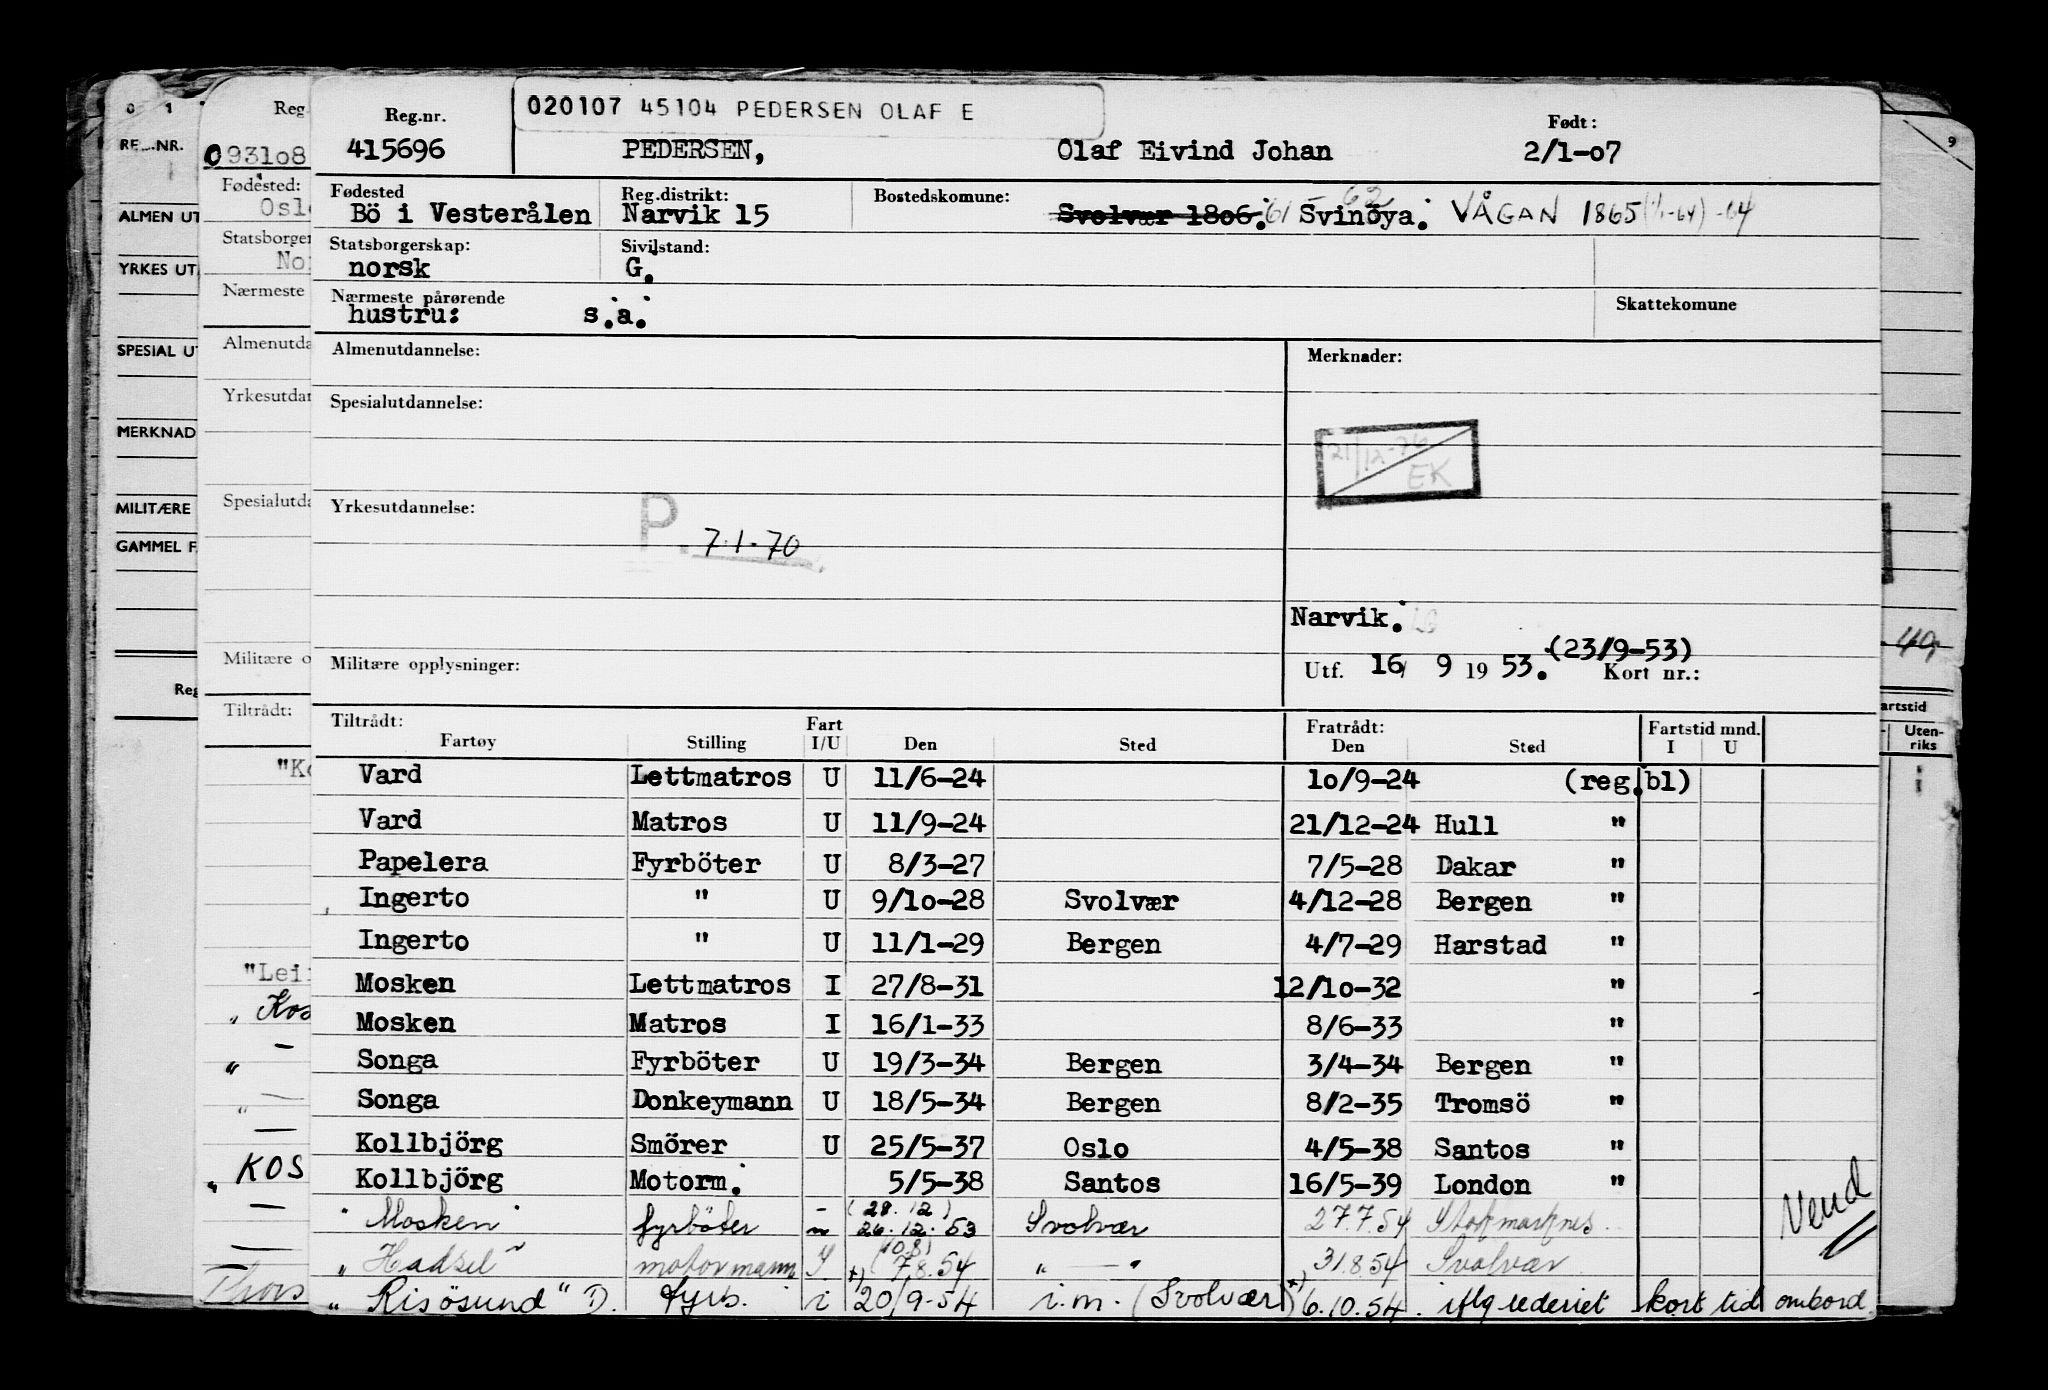 020107 45104 PEDERSEN OLAF E
Reg.nr. Født:
415696 PEDERSEN, Olaf Eivind Johan 2/1-07
Fødested Reg.distrikt: Bostedskomune:
Bö i Vesterålen Narvik 15 Svolvær 1806. 61-62 Svinöya. VÅGAN 1865 (1/1-64) -64
Statsborgerskap: Sivilstand:
norsk G.
Nærmeste pårørende Skattekomune
hustru: s.a.
Almenutdannelse: Merknader:
Spesialutdannelse:
21/12-76 EK
Yrkesutdannelse:
P. 7.1.70
Narvik.
(23/9-53)
Militære opplysninger: Utf. 16/ 9 19 53. Kort nr.:
Tiltrådt: Fart Fratrådt: Fartstid mnd.
Fartøy Stilling I/U Den Sted Den Sted I U
Vard Lettmatros U 11/6-24 10/9-24 (reg.bl)
Vard Matros U 11/9-24 21/12-24 Hull "
Papelera Fyrböter U 8/3-27 7/5-28 Dakar "
Ingerto " U 9/10-28 Svolvær 4/12-28 Bergen "
Ingerto " U 11/1-29 Bergen 4/7-29 Harstad "
Mosken Lettmatros I 27/8-31 12/10-32 "
Mosken Matros I 16/1-33 8/6-33 "
Songa Fyrböter U 19/3-34 Bergen 3/4-34 Bergen "
Songa Donkeymann U 18/5-34 Bergen 8/2-35 Tromsö "
Kollbjörg Smörer U 25/5-37 Oslo 4/5-38 Santos "
Kollbjörg Motorm. 5/5-38 Santos 16/5-39 London "
(28.12)
"Mosken" fyrböter 26.12.53 Svolvær 27.7.54 Stokmarknes
(10.8)
"Hadsel" motormann I 7.8.54 " — " 31.8.54 Svolvær
"Risösund" D. fyrb. i x) 20/9-54 i.m. (Svolvær) x) 6.10.54. iflg rederiet kort tid ombord
Vend
0 1
REG.NR.
ALMEN UT
YRKES UT
SPESIAL UT
MERKNAD
MILITÆRE
GAMMEL F
Reg
Reg.
093108
Fødested:
Oslo
Statsborger
Nor
Nærmeste
Almenutda
Yrkesutdan
Spesialutda
Militære o
Tiltrådt:
"Ko
"Lei
" Kos
" —
" —
" KOS
—
—
Thors
9
49,
artstid
Uten-
riks